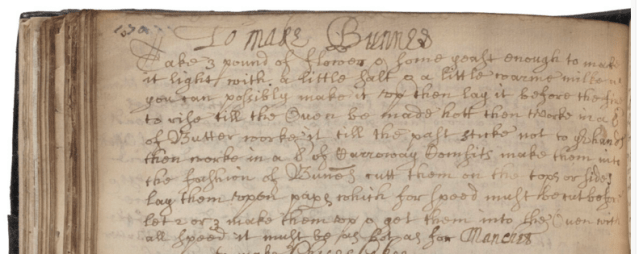 To make Bunnes
Take 3 pound of flower & some yeast enough to make
it light with a little salt & a little warme milke
you can possibly make it up then lay it before the fire
to rise till the Oven be made hott then worke in a
of Butter worke it till the past sticke not to
then worke in a of Carroway Comfits make them into
the fashion of Bunes cutt them on the tops or sides
lay them upon paps which for speed must be cut before
let 2 or 3 make them up & get them into the Oven with
all speed it must be as hot as for Manchet
to make